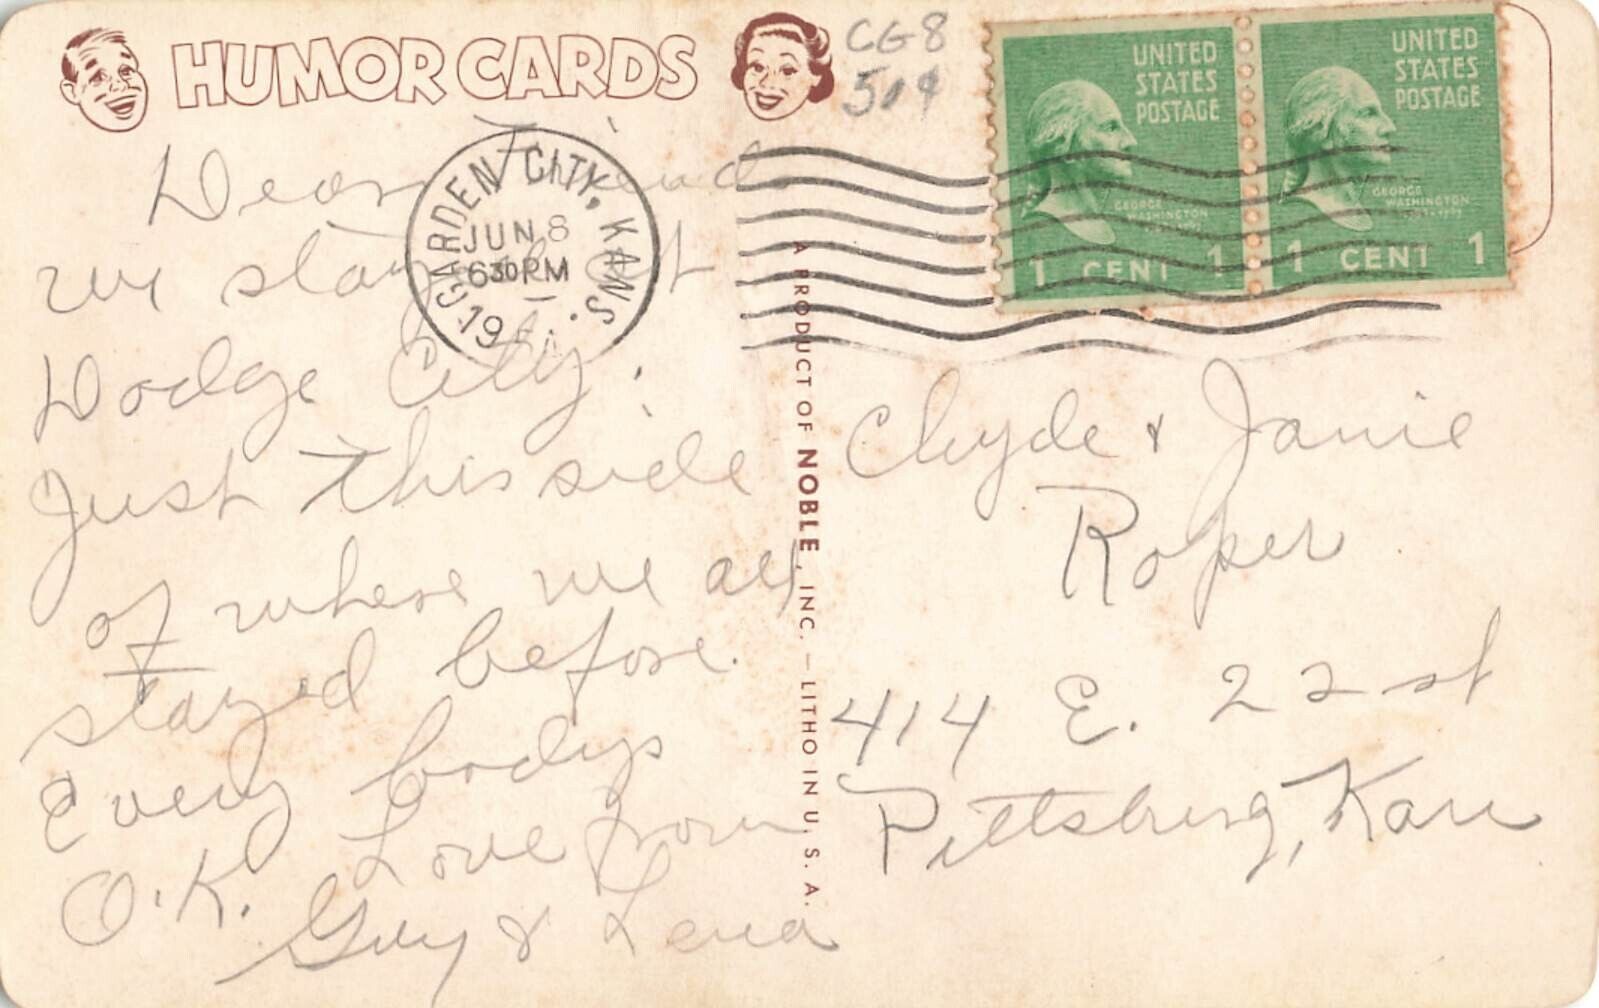 HUMOR CARDS
CG8
50¢
UNITED
STATES
POSTAGE
GEORGE
WASHINGTON
1 CENT 1
UNITED
STATES
POSTAGE
GEORGE
WASHINGTON
1 CENT 1
GARDEN CITY, KANS.
JUN 8
630 PM
19
Dear Friends
we stayed at
Dodge City.
Just this side
of where we all
stayed before.
Every bodys
O.K. Love from
Guy & Lena
A PRODUCT OF NOBLE, INC. — LITHO IN U. S. A.
Clyde & Janie
Roper
414 E. 22 st
Pittsburg, Kans